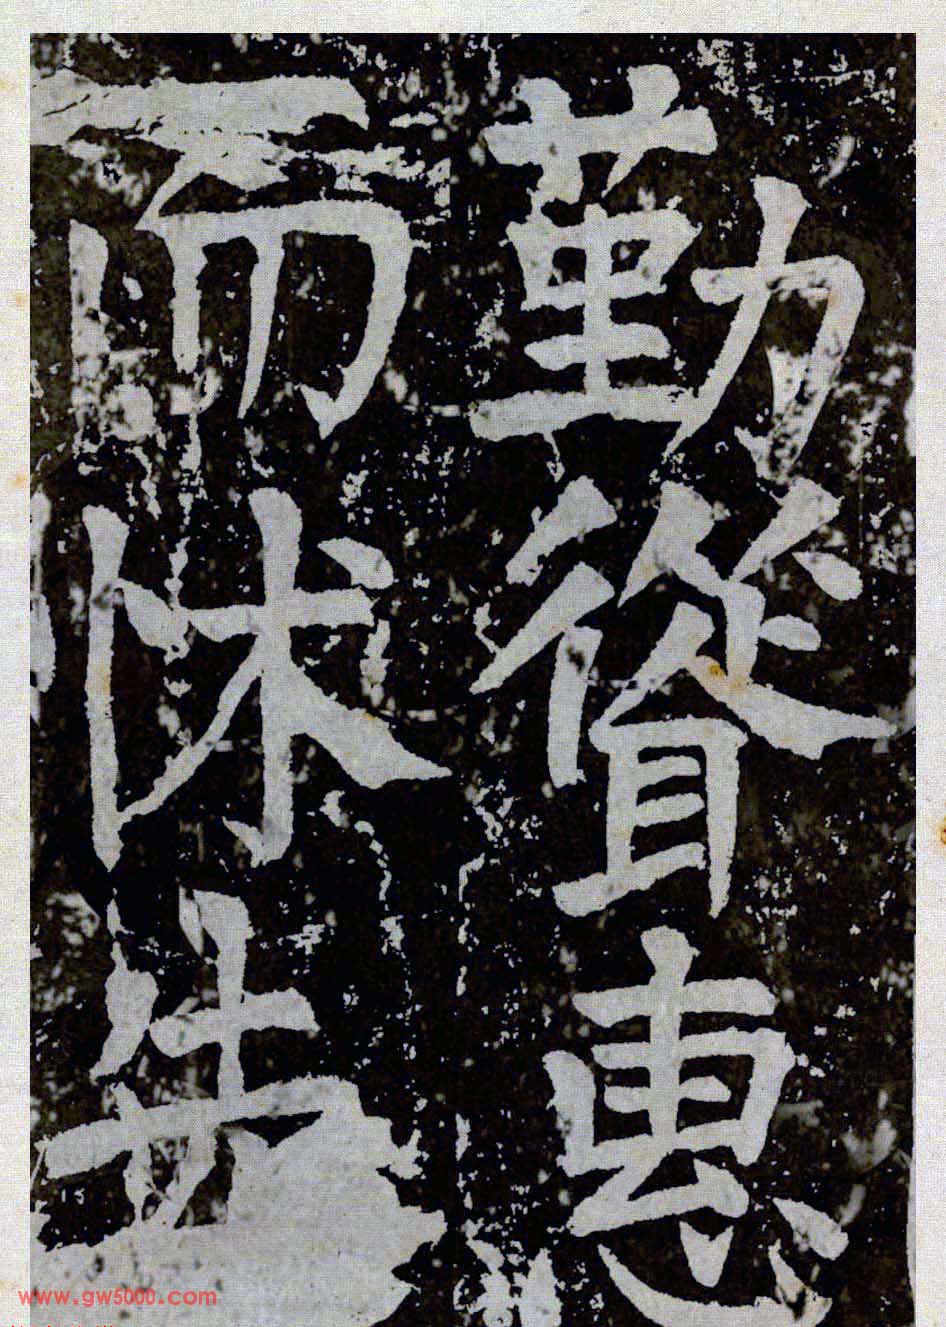 勤聳惠
而怵
www.gw5000.com